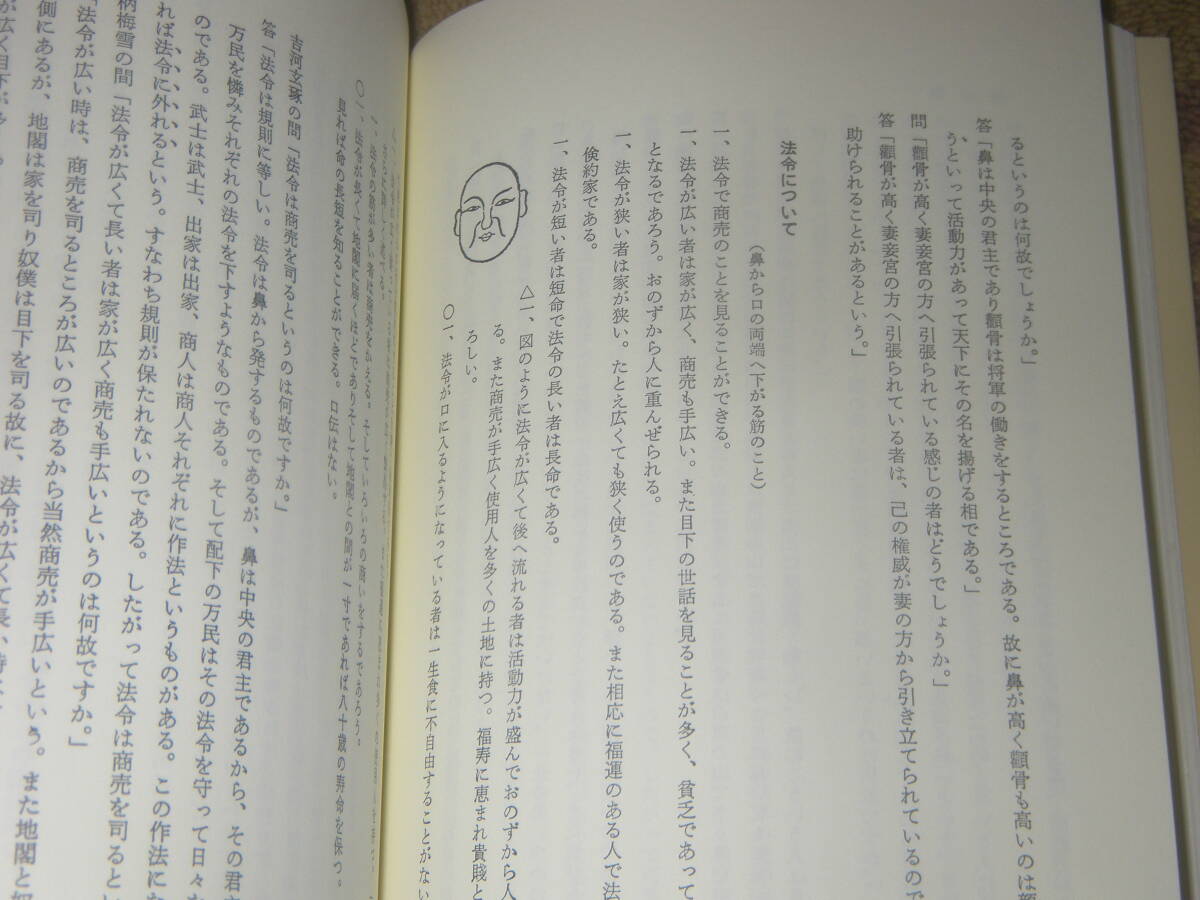 るというのは何故でしょうか。」
答「鼻は中央の君主であり顴骨は将軍の働きをするところである。故に鼻が高く顴骨も高いのは
、うといって活動力があって天下にその名を揚げる相である。」
問「顴骨が高く妻妾宮の方へ引張られている感じの者はどうでしょうか。」
答「顴骨が高く妻妾宮の方へ引張られている者は、己の権威が妻の方から引き立てられているので
助けられることがあるという。」
法令について
(鼻から口の両端へ下がる筋のこと)
一、法令で商売のことを見ることができる。
一、法令が広い者は家が広く、商売も手広い。また目下の世話を見ることが多く、貧乏であって
となるであろう。おのずから人に重んぜられる。
一、法令が狭い者は家が狭い。たとえ広くても狭く使うのである。また相応に福運のある人で法
倹約家である。
一、法令が短い者は短命で法令の長い者は長命である。
△一、図のように法令が広くて後へ流れる者は活動力が盛んでおのずから人
る。また商売が手広く使用人を多くの土地に持つ。福寿に恵まれ貴賤と
ろしい。
〇一、法令が口に入るようになっている者は一生食に不自由することがない
一、法令の筋が多い者は商売をかえる。そしていろいろの商いをするであろう。
〇一、法令が長くて地閣に届くほどでありそして地閣との間が一寸であれば八十歳の寿命を保つ。
見れば命の長短を知ることができる。口伝はない。
吉河玄琢の問「法令は商売を司るというのは何故ですか。」
答「法令は規則に等しい。法令は鼻から発するものであるが、鼻は中央の君主であるから、その君主
万民を憐みそれぞれの法令を下すようなものである。そして配下の万民はその法令を守って日々
のである。武士は武士、出家は出家、商人は商人それぞれに作法というものがある。この作法に
れば法令に外れるという。すなわち規則が保たれないのである。したがって法令は商売を司ると
柄梅雪の問「法令が広くて長い者は家が広く商売も手広いというのは何故ですか。」
「法令が広い時は、商売を司るところが広いのであるから当然商売が手広いという。また地閣と
側にあるが、地閣は家を司り奴僕は目下を司る故に、法令が広くて長い時は